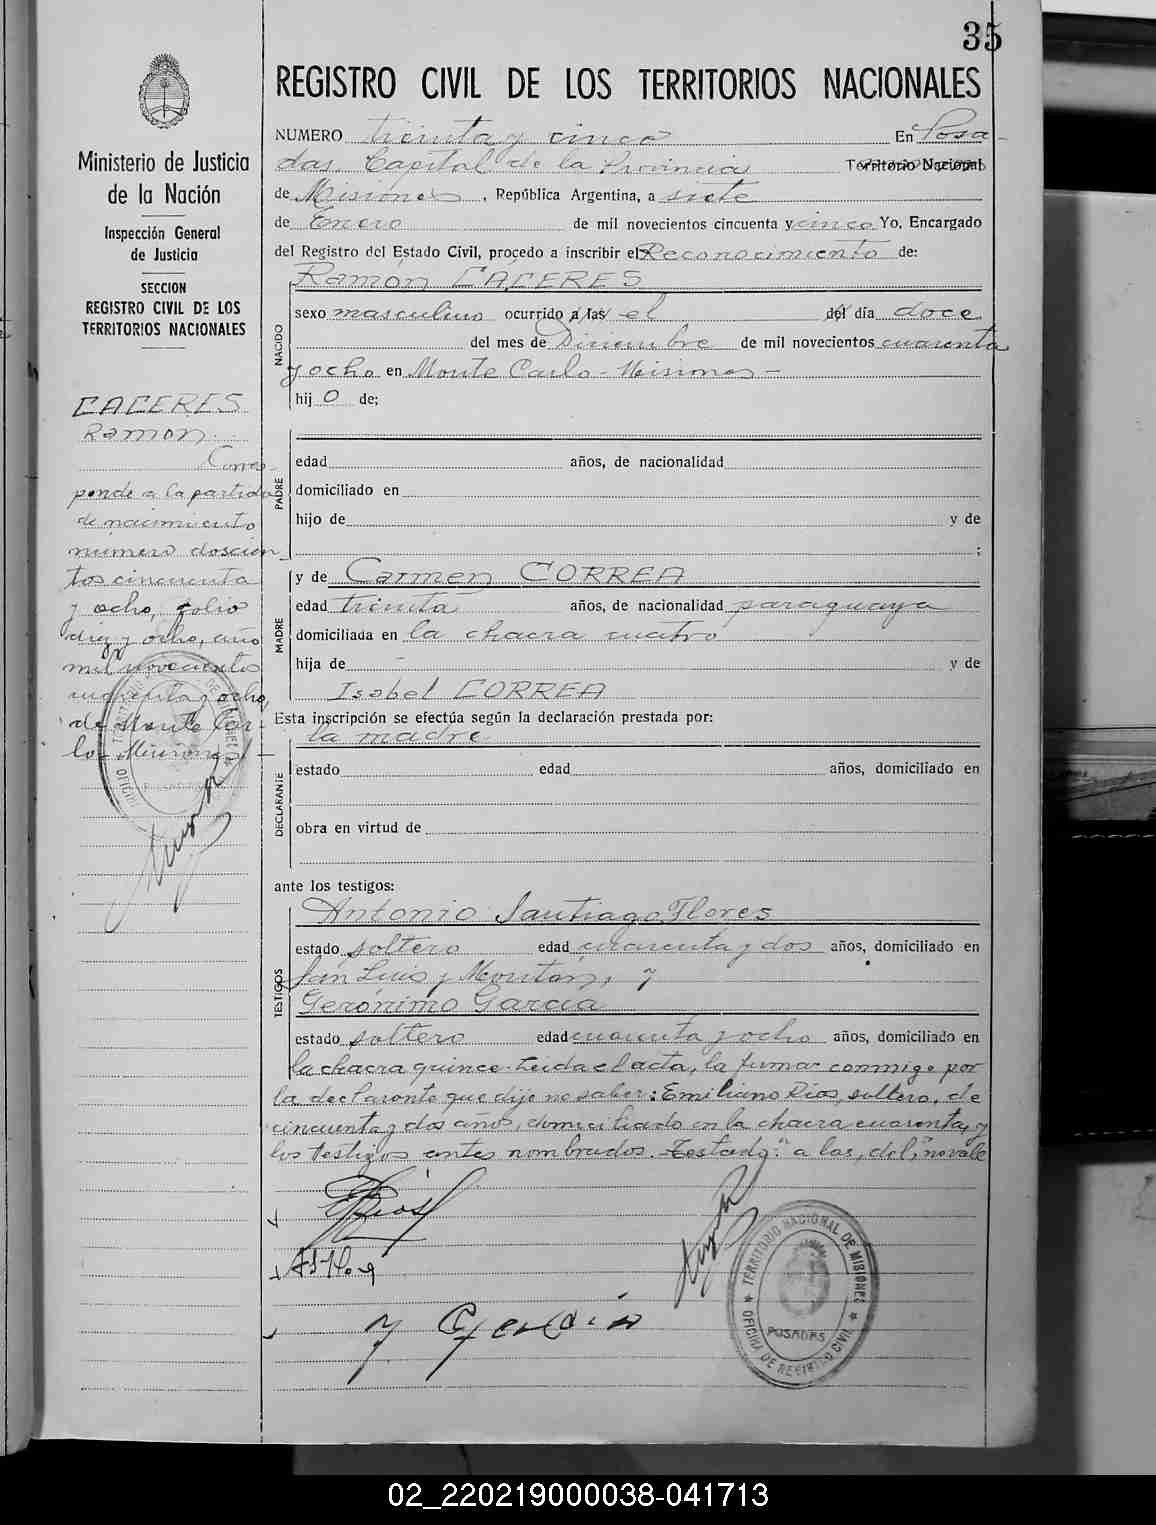 35
REGISTRO CIVIL DE LOS TERRITORIOS NACIONALES
Ministerio de Justicia
de la Nación
Inspección General
de Justicia
SECCION
REGISTRO CIVIL DE LOS
TERRITORIOS NACIONALES
CACERES
Ramón
Corres-
ponde a la partida
de nacimiento
número doscien
tos cincuenta
y ocho, folio
diez y ocho, año
mil novecientos
cuarenta y ocho,
de Monte Car-
lo- Misiones -
NUMERO treinta y cinco En Posa-
das, Capital de la Provincia Territorio Nacional
de Misiones, República Argentina, a siete
de Enero de mil novecientos cincuenta y cinco Yo, Encargado
del Registro del Estado Civil, procedo a inscribir el Reconocimiento de:
Ramón CACERES
NACIDO
sexo masculino ocurrido a las el del día doce
del mes de Diciembre de mil novecientos cuarenta
y ocho en Monte Carlo - Misiones -
hij o de;
PADRE
edad años, de nacionalidad
domiciliado en
hijo de y de
;
MADRE
y de Carmen CORREA
edad treinta años, de nacionalidad paraguaya
domiciliada en la chacra cuatro
hija de - y de
Isabel CORREA
Esta inscripción se efectúa según la declaración prestada por:
la madre
DECLARANTE
estado edad años, domiciliado en
obra en virtud de
ante los testigos:
TESTIGOS
Antonio Santiago Flores
estado soltero edad cuarenta y dos años, domiciliado en
San Luis y Moritán, y
Gerónimo García
estado soltero edad cuarenta y ocho años, domiciliado en
la chacra quince. Leida el acta, la firma conmigo por
la declarante que dijo no saber: Emiliano Rios, soltero, de
cincuenta y dos años, domiciliado en la chacra cuarenta, y
los testigos antes nombrados. Testado: "a las, del," no vale
ERios
ASFlores
y García
TERRITORIO NACIONAL DE MISIONES
POSADAS
OFICINA DE REGISTRO CIVIL
02_220219000038-041713